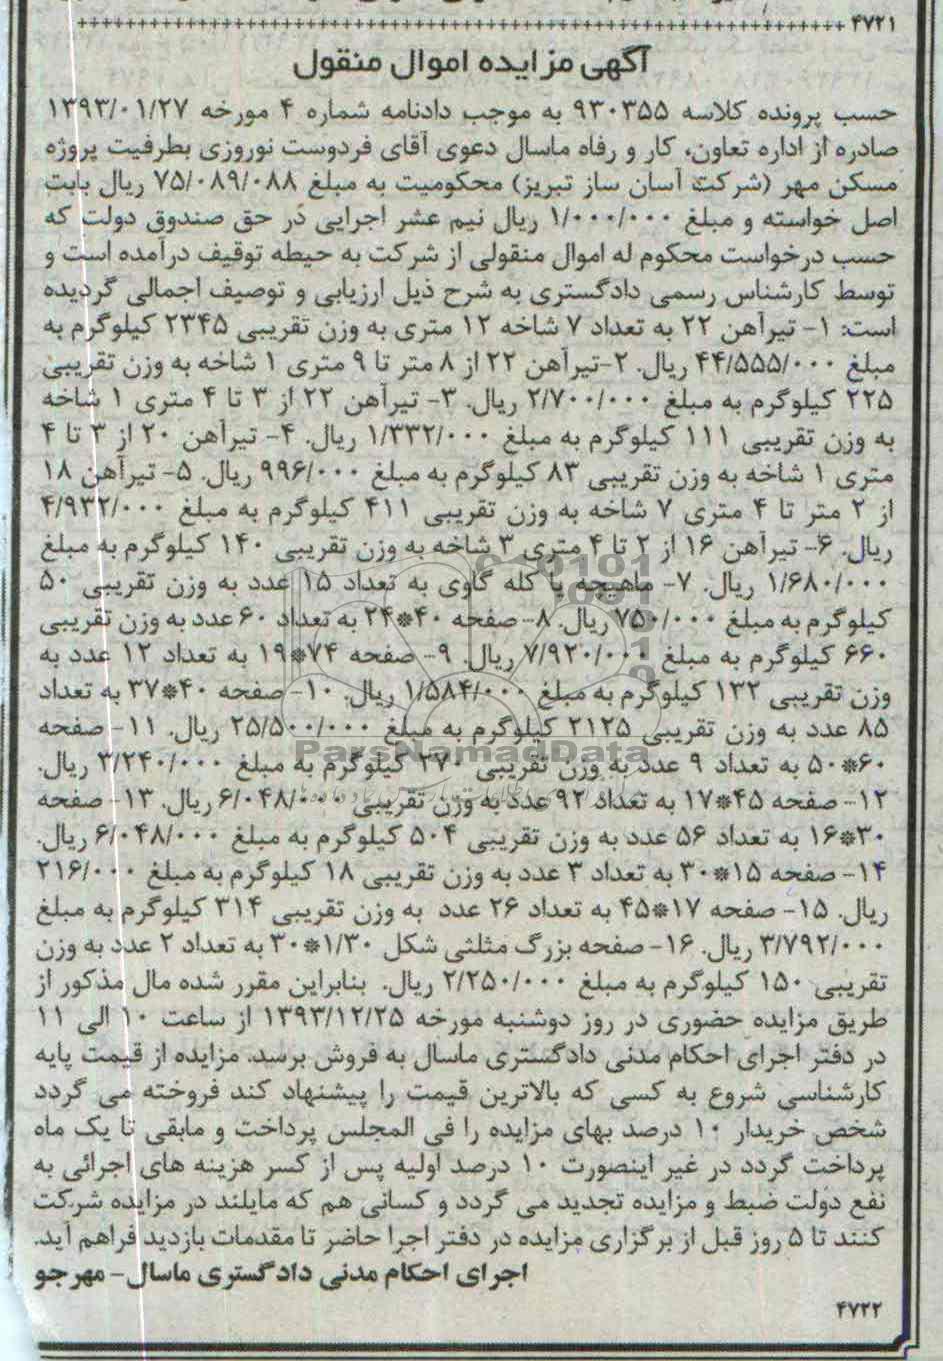 ۴۷۲۱
آگهی مزایده اموال منقول
حسب پرونده کلاسه ۹۳۰۳۵۵ به موجب دادنامه شماره ۴ مورخه ۱۳۹۳/۰۱/۲۷
صادره از اداره تعاون، کار و رفاه ماسال دعوی آقای فردوست نوروزی بطرفیت پروژه
مسکن مهر (شرکت آسان ساز تبریز) محکومیت به مبلغ ۷۵/۰۸۹/۰۸۸ ریال بابت
اصل خواسته و مبلغ ۱/۰۰۰/۰۰۰ ریال نیم عشر اجرایی در حق صندوق دولت که
حسب درخواست محکوم له اموال منقولی از شرکت به حیطه توقیف درآمده است و
توسط کارشناس رسمی دادگستری به شرح ذیل ارزیابی و توصیف اجمالی گردیده
است: ۱- تیرآهن ۲۲ به تعداد ۷ شاخه ۱۲ متری به وزن تقریبی ۲۳۴۵ کیلوگرم به
مبلغ ۴۴/۵۵۵/۰۰۰ ریال. ۲-تیرآهن ۲۲ از ۸ متر تا ۹ متری ۱ شاخه به وزن تقریبی
۲۲۵ کیلوگرم به مبلغ ۲/۷۰۰/۰۰۰ ریال. ۳- تیرآهن ۲۲ از ۳ تا ۴ متری ۱ شاخه
به وزن تقریبی ۱۱۱ کیلوگرم به مبلغ ۱/۳۳۲/۰۰۰ ریال. ۴- تیرآهن ۲۰ از ۳ تا ۴
متری ۱ شاخه به وزن تقریبی ۸۳ کیلوگرم به مبلغ ۹۹۶/۰۰۰ ریال. ۵- تیرآهن ۱۸
از ۲ متر تا ۴ متری ۷ شاخه به وزن تقریبی ۴۱۱ کیلوگرم به مبلغ ۴/۹۳۲/۰۰۰
ریال. ۶- تیرآهن ۱۶ از ۲ تا ۴ متری ۳ شاخه به وزن تقریبی ۱۴۰ کیلوگرم به مبلغ
۱/۶۸۰/۰۰۰ ریال. ۷- ماهیچه یا کله گاوی به تعداد ۱۵ عدد به وزن تقریبی ۵۰
کیلوگرم به مبلغ ۷۵۰/۰۰۰ ریال. ۸- صفحه ۴۰*۲۴ به تعداد ۶۰ عدد به وزن تقریبی
۶۶۰ کیلوگرم به مبلغ ۷/۹۲۰/۰۰۰ ریال. ۹- صفحه ۷۴*۱۹ به تعداد ۱۲ عدد به
وزن تقریبی ۱۳۲ کیلوگرم به مبلغ ۱/۵۸۴/۰۰۰ ریال. ۱۰- صفحه ۴۰*۳۷ به تعداد
۸۵ عدد به وزن تقریبی ۲۱۲۵ کیلوگرم به مبلغ ۲۵/۵۰۰/۰۰۰ ریال. ۱۱- صفحه
۶۰*۵۰ به تعداد ۹ عدد به وزن تقریبی ۲۷۰ کیلوگرم به مبلغ ۳/۲۴۰/۰۰۰ ریال.
۱۲- صفحه ۴۵*۱۷ به تعداد ۹۲ عدد به وزن تقریبی ۶/۰۴۸/۰۰۰ ریال. ۱۳- صفحه
۳۰*۱۶ به تعداد ۵۶ عدد به وزن تقریبی ۵۰۴ کیلوگرم به مبلغ ۶/۰۴۸/۰۰۰ ریال.
۱۴- صفحه ۱۵*۳۰ به تعداد ۳ عدد به وزن تقریبی ۱۸ کیلوگرم به مبلغ ۲۱۶/۰۰۰
ریال. ۱۵- صفحه ۱۷*۴۵ به تعداد ۲۶ عدد به وزن تقریبی ۳۱۴ کیلوگرم به مبلغ
۳/۷۹۲/۰۰۰ ریال. ۱۶- صفحه بزرگ مثلثی شکل ۱/۳۰*۳۰ به تعداد ۲ عدد به وزن
تقریبی ۱۵۰ کیلوگرم به مبلغ ۲/۲۵۰/۰۰۰ ریال. بنابراین مقرر شده مال مذکور از
طریق مزایده حضوری در روز دوشنبه مورخه ۱۳۹۳/۱۲/۲۵ از ساعت ۱۰ الی ۱۱
در دفتر اجرای احکام مدنی دادگستری ماسال به فروش برسد. مزایده از قیمت پایه
کارشناسی شروع به کسی که بالاترین قیمت را پیشنهاد کند فروخته می گردد
شخص خریدار ۱۰ درصد بهای مزایده را فی المجلس پرداخت و مابقی تا یک ماه
پرداخت گردد در غیر اینصورت ۱۰ درصد اولیه پس از کسر هزینه های اجرائی به
نفع دولت ضبط و مزایده تجدید می گردد و کسانی هم که مایلند در مزایده شرکت
کنند تا ۵ روز قبل از برگزاری مزایده در دفتر اجرا حاضر تا مقدمات بازدید فراهم آید.
اجرای احکام مدنی دادگستری ماسال- مهرجو
۴۷۲۲
ParsNamadData